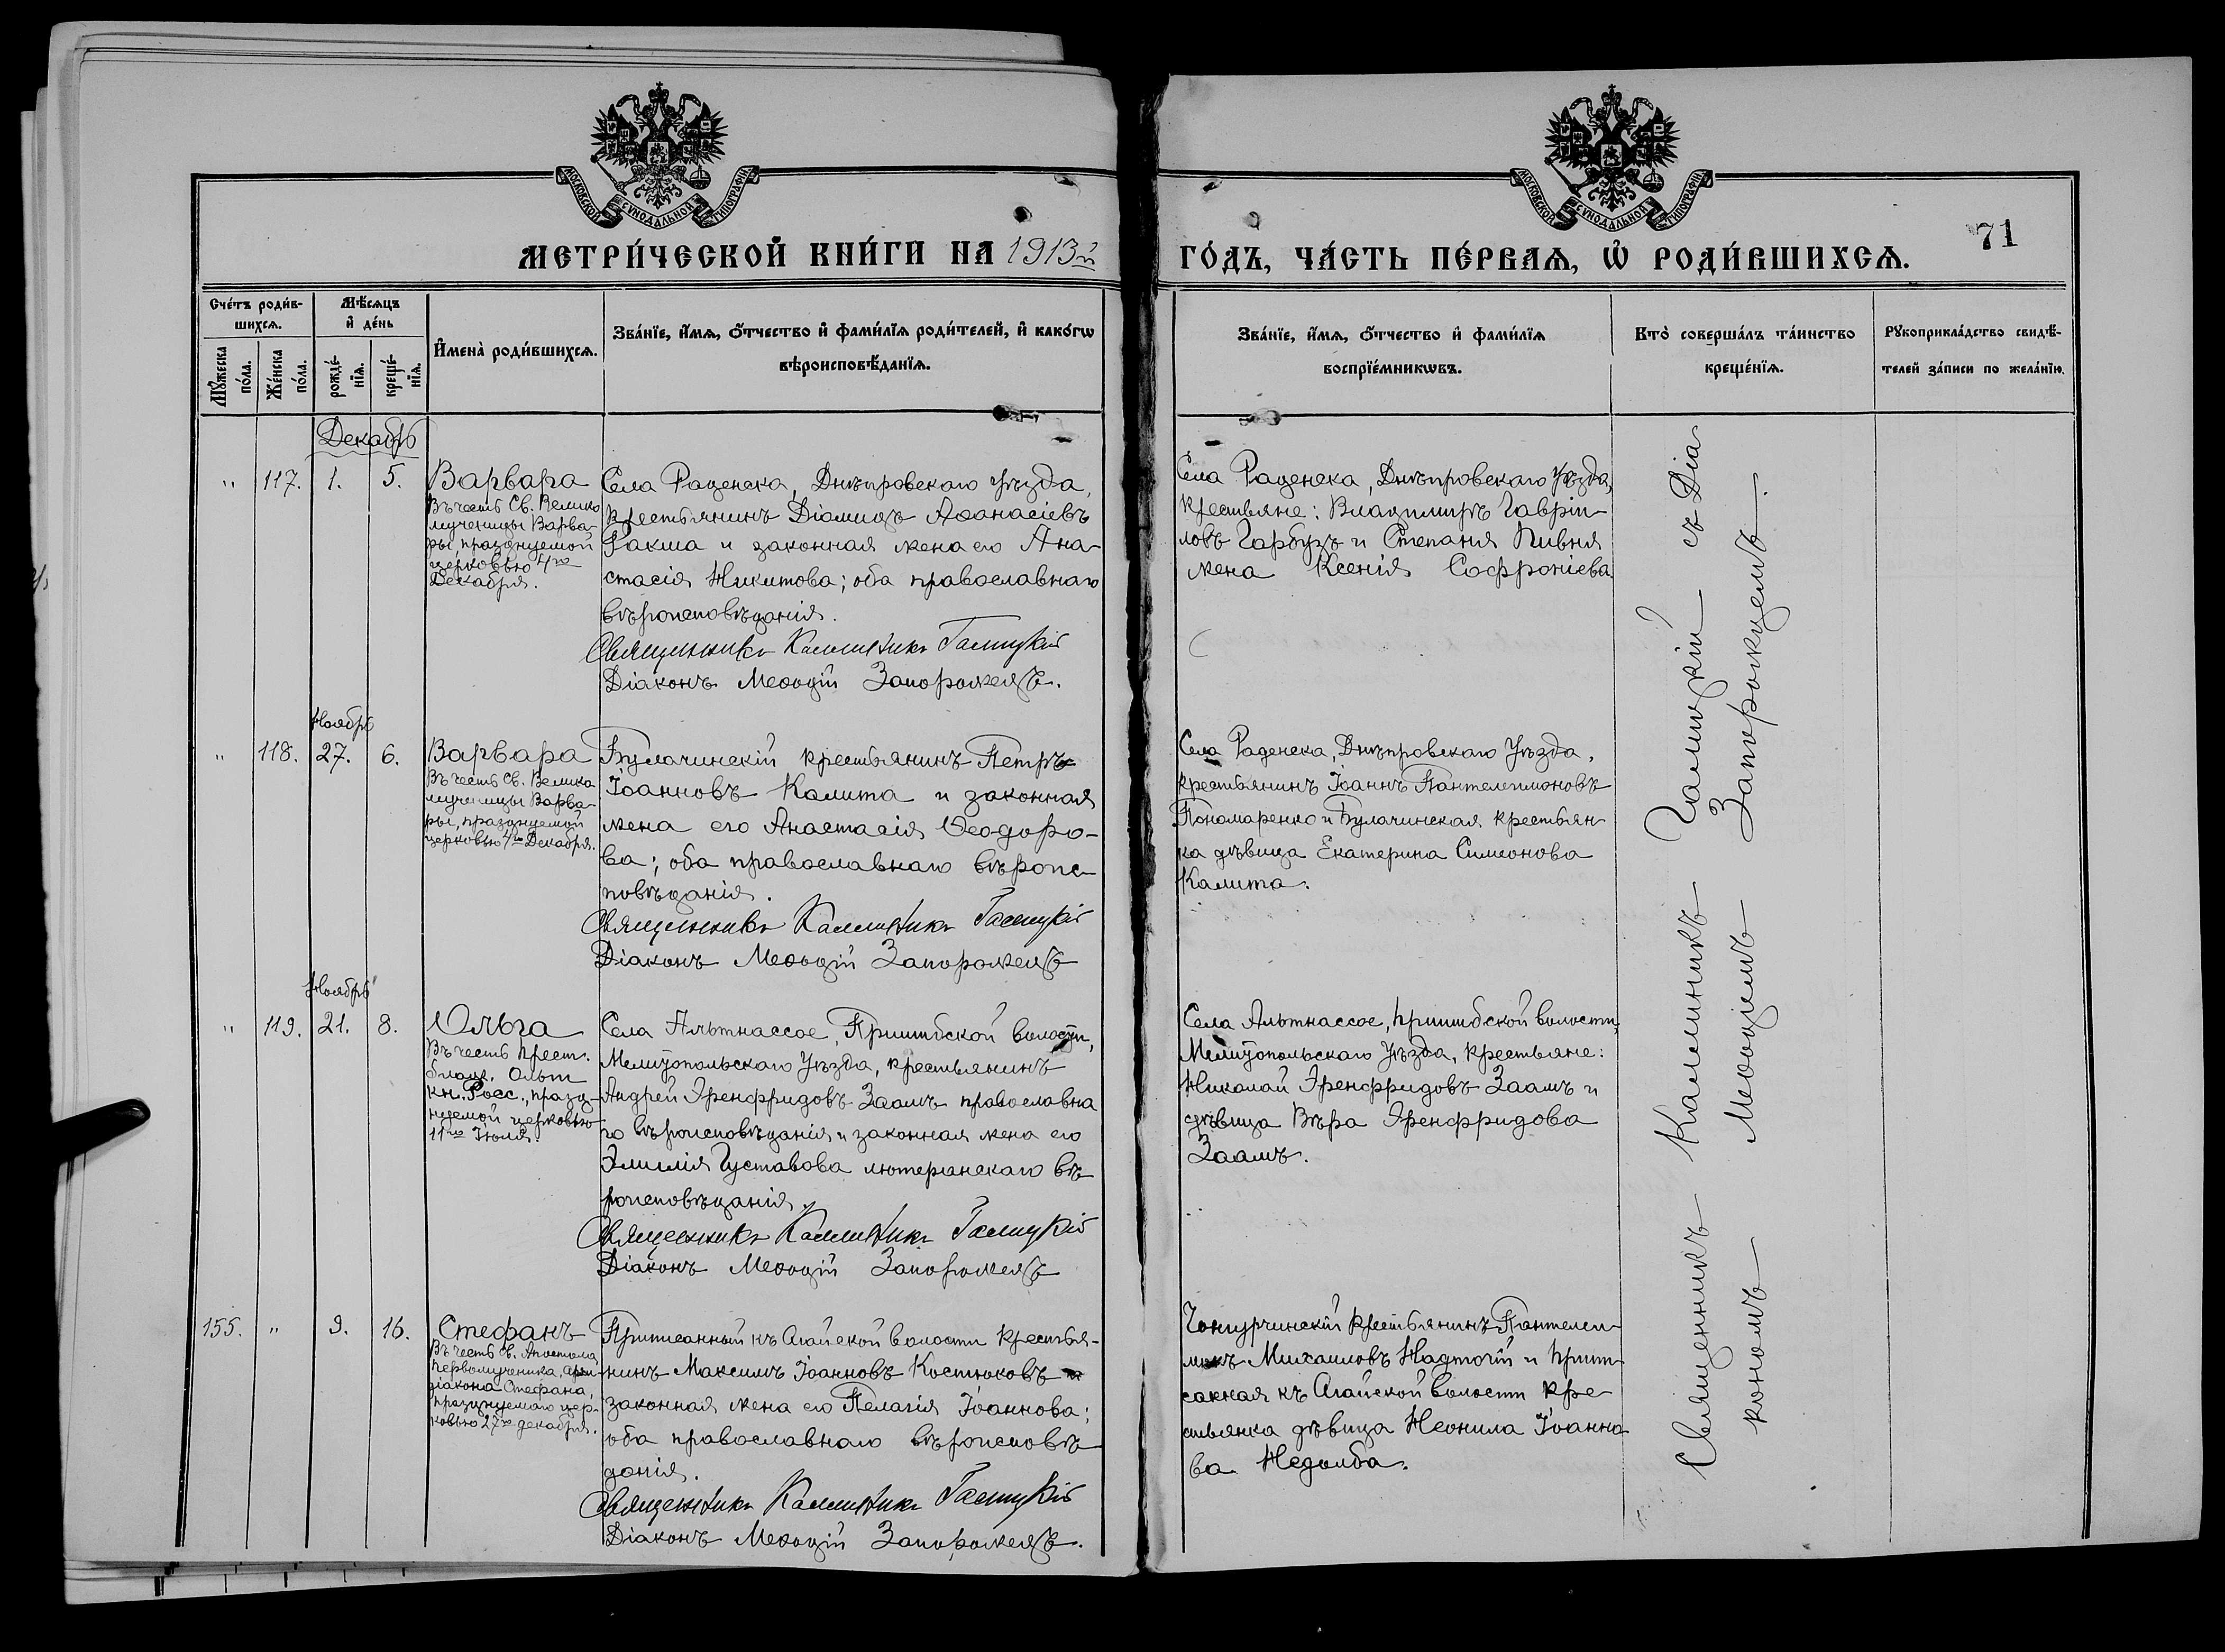 МОСКОВСКОЙ СѴНОДАЛЬНОЙ ТИПОГРАФІИ
МОСКОВСКОЙ СѴНОДАЛЬНОЙ ТИПОГРАФІИ
МЕТРИ́ЧЕСКОЙ КНИ́ГИ НА 1913й
ГО́ДЪ, ЧА́СТЬ ПЕ́РВАѦ, Ѡ҆ РОДИ́ВШИХСѦ.
71
Сче́тъ роди́в-
шихсѧ.
Мѣ́сѧцъ
и҆ де́нь
Мꙋ́жеска по́ла.
Же́нска по́ла.
рожде́-
нїѧ.
креще́-
нїѧ.
И҆мена̀ роди́вшихсѧ.
Зва́нїе, и҆́мѧ, ѻ҆́тчество и҆ фами́лїѧ роди́телей, и҆ како́гѡ
вѣроисповѣ́данїѧ.
Зва́нїе, и҆́мѧ, ѻ҆́тчество и҆ фами́лїѧ
воспрїе́мникѡвъ.
Кто̀ соверша́лъ та́инство
креще́нїѧ.
Рꙋкоприкла́дство свидѣ́-
телей за́писи по жела́нїю.
Декабрь
" 117. 1. 5.
Варвара
Въ честь Св. Велико
мученицы Варва-
ры, празднуемой
церковью 4го
Декабря.
Села Раденска, Днѣпровскаго уѣзда,
крестьянинъ Діомидъ Аѳанасіевъ
Ракша и законная жена его Ана-
стасія Никитова; оба православнаго
вѣроисповѣданія.
Священникъ Каллиникъ Галицкій
Діаконъ Меѳодій Запорожецъ.
Села Раденска, Днѣпровскаго Уѣзда,
крестьяне: Владимиръ Гавріи-
ловъ Гарбузъ и Степана Пивня
жена Ксенія Софроніева
Ноябрь
" 118. 27. 6.
Варвара
Въ честь Св. Велико
мученицы Варва-
ры, празднуемой
церковью 4го Декабря.
Булачинскій крестьянинъ Петръ
Іоанновъ Калита и законная
жена его Анастасія Ѳеодоро-
ва; оба православнаго вѣроис-
повѣданія.
Священникъ Каллиникъ Галицкій
Діаконъ Меѳодій Запорожецъ
Села Раденска, Днѣпровскаго Уѣзда,
крестьянинъ Іоаннъ Пантелеимоновъ
Пономаренко и Булачинская крестьян-
ка дѣвица Екатерина Симеонова
Калита.
Ноябрь
" 119. 21. 8.
Ольга
Въ честь
благ. Ольги
кн. Росс., празд-
нуемой церковью
11го Іюля.
Села Альтнассое, Пришибской волости,
Мелитопольскаго Уѣзда, крестьянинъ
Андрей Эренфридовъ Заамъ православна
го вѣроисповѣданія и законная жена его
Эмилія Густавова лютеранскаго вѣ-
роисповѣданія.
Священникъ Каллиникъ Галицкій
Діаконъ Меѳодій Запорожецъ
Села Альтнассое, Пришибской волости,
Мелитопольскаго Уѣзда, крестьяне:
Николай Эренфридовъ Заамъ и
дѣвица Вѣра Эренфридова
Заамъ.
155. " 9. 16.
Стефанъ
Въ честь Св. Апостола
Первомученика, архи-
діакона Стефана,
празднуемаго цер-
ковью 27го декабря.
Приписанный къ Агайской волости крестья-
нинъ Максимъ Іоанновъ Костюковъ и
законная жена его Пелагія Іоаннова;
оба православнаго вѣроисповѣ
данія.
Священникъ Каллиникъ Галицкій
Діаконъ Меѳодій Запорожецъ.
крестьянинъ Пантелеи-
монъ Михаиловъ Надточій и припи-
санная къ Агайской волости кре-
стьянка дѣвица Неонила Іоанно-
ва Недолба.
Священникъ Каллиникъ Галицкій съ Діа-
кономъ Меѳодіемъ Запорожцемъ.